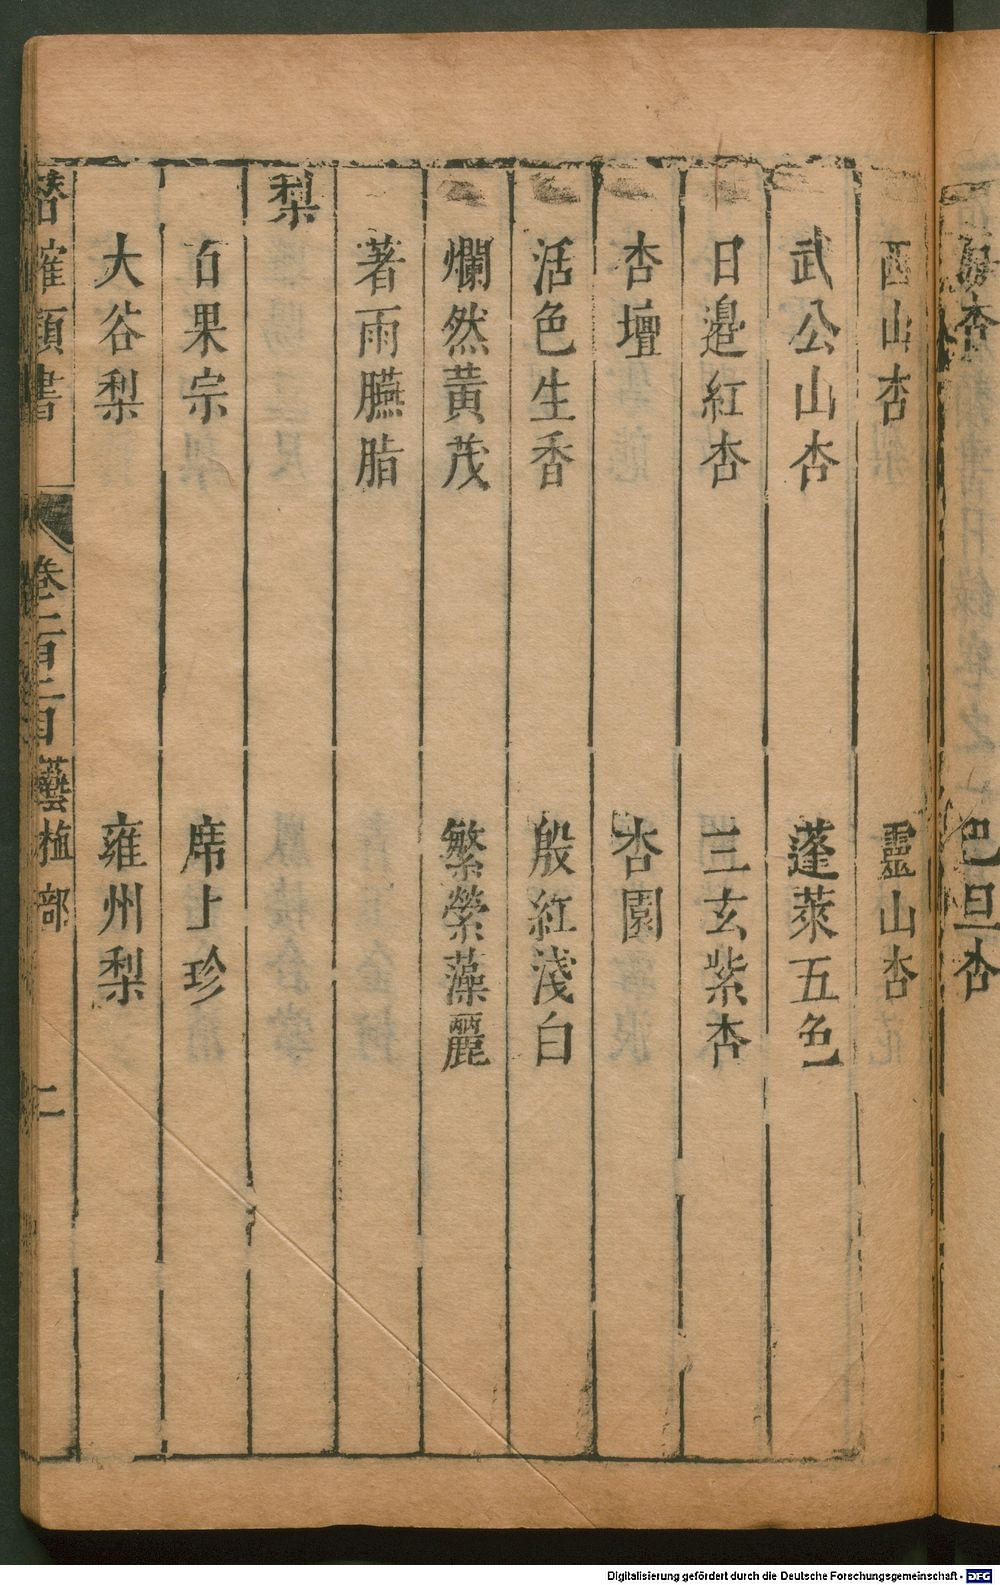 巴旦杏
西山杏 靈山杏
武公山杏 蓬萊五色
日邉紅杏 三玄紫杏
杏壇 杏園
活色生香 殷紅淺白
爛然黃茂 繁縈藻麗
著雨臙脂
梨
百果宗 席上珍
大谷梨 雍州梨
潛確類書 卷一百二目 藝植部 二
Digitalisierung gefördert durch die Deutsche Forschungsgemeinschaft - DFG